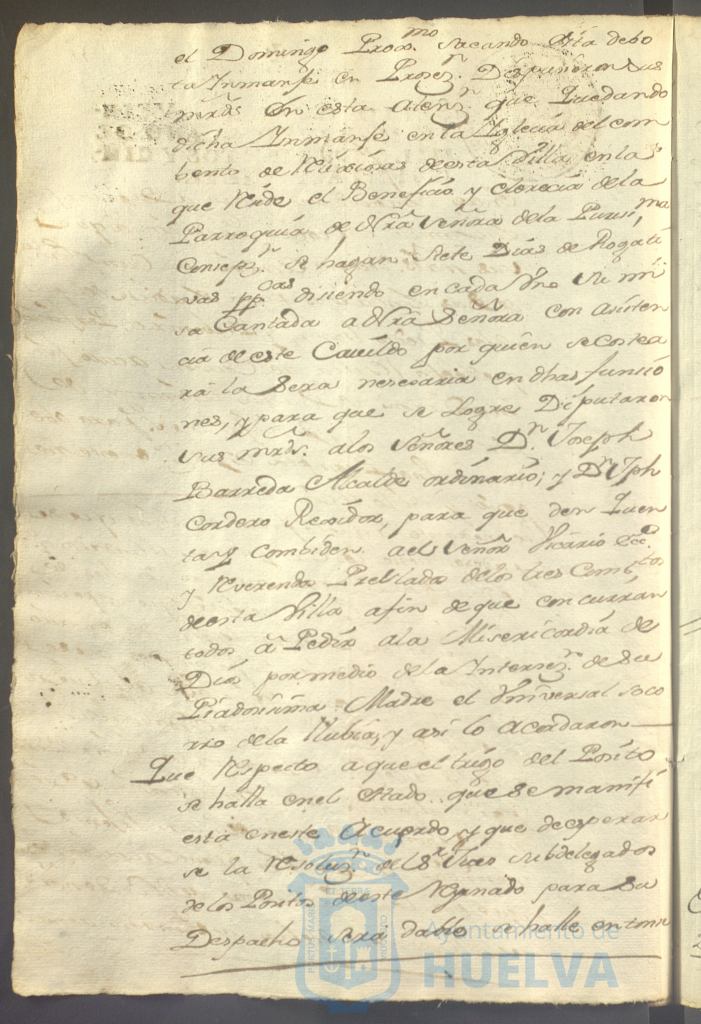 el Domingo Prox.mo sacando esta debo
ta Ymmanse en Prosez.n Dispusieron sus
mrds. en esta atenz.n que Quedando
dicha Ynmanse en la Yglecia del com
bento de Relixiosas de esta Villa, en la
que Recide el Beneficio y clerecia de la
Parroquia de Nra Señra de la Puris,ma
Consepz.n se hagan siete Dias de Rogati
vas pp.cas disiendo en cada Vno su mi
sa Cantada a Nra Señora con asisten
cia de este Cavildo por quien se costea
rá la Sera nesesaria en dhas funsio
nes, y para que se Logre, Diputaron
sus mrds. a los Señores D.n Joseph
Barreda Alcalde ordinario; y D.n Jph
Cordero Rexidor, para que den Quen
ta y combiden a el Señor Vicario Ecc.o
y Reverendos Prelados de los tres Comb.tos
de esta Villa afin de que concurran
todos à Pedir a la Misericordia de
Dios por medio de la Intersez.n de Su
Piadosisima Madre el Vniversal soco
rro de la Llubia, y asi lo acordaron
Que Respecto a que el trigo del Posito
se halla en el estado que se manifi
esta en este Acuerdo, y que de esperar
se la Resoluz.n del S.r Juez subdelegado
de los Positos de este Reynado para Su
Despacho sera dable se halle enton
Ayuntamiento de
HUELVA